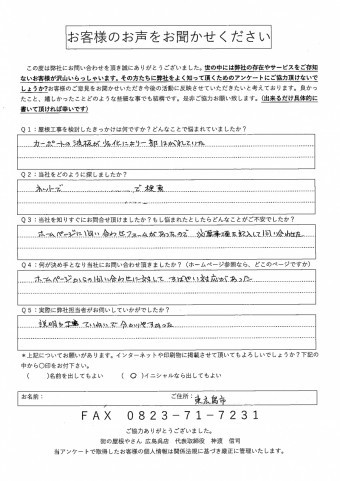 お客様のお声をお聞かせください
この度は弊社にお問い合わせを頂き誠にありがとうございました。世の中には弊社の存在やサービスをご存知
ないお客様が沢山いらっしゃいます。その方たちに弊社をよく知って頂くためのアンケートにご協力頂けないで
しょうか?お客様のご意見をお聞かせいただき今後の活動に反映させていただきたいと考えております。良かっ
たこと、嬉しかったことどのような些細な事でも結構です。是非ご協力お願い致します。(出来るだけ具体的に
書いて頂ければ幸いです)
Q1:屋根工事を検討したきっかけは何ですか?どんなことで悩まれていましたか?
カーポートの波板が劣化により一部はがれていた
Q2:当社をどのように探しましたか?
ネットで で検索
Q3:当社を知りすぐにお問合せ頂けましたか?もし悩まれたとしたらどんなことがご不安でしたか?
ホームページに問い合わせフォームがあったので必要事項を記入して問い合わせた
Q4:何が決め手となり当社にお問い合わせ頂きましたか?(ホームページ参照なら、どこのページですか)
ホームページからの問い合わせに対して すばやい対応があった
Q5:実際に弊社担当者がお伺いしていかがでしたか?
説明も ていねいで 分かりやすかった
*上記についてお願いがあります。インターネットや印刷物に掲載させて頂いてもよろしいでしょうか?下記の
中から〇印をお付下さい。
( )名前を出してもよい (〇)イニシャルなら出してもよい
お名前: ご住所: 東広島市
FAX 0823-71-7231
ご協力ありがとうございました。
街の屋根やさん 広島呉店 代表取締役 神渡 信司
当アンケートで取得したお客様の個人情報は関係法規に基づき厳正に管理いたします。